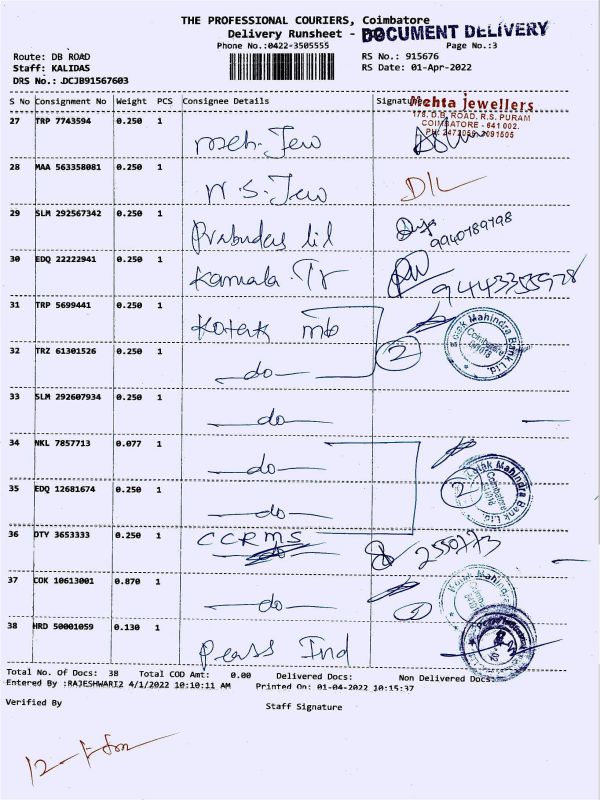 THE PROFESSIONAL COURIERS, Coimbatore
Delivery Runsheet - DOCUMENT DELIVERY
Phone No.:0422-3505555 Page No.:3
Route: DB ROAD RS No.: 915676
Staff: KALIDAS RS Date: 01-Apr-2022
DRS No.: DCJB91567603
S No Consignment No Weight PCS Consignee Details Signature
Mehta Jewellers
178, D.B. ROAD, R.S. PURAM
COIMBATORE - 641 002.
27 TRP 7743594 0.250 1
28 MAA 563358081 0.250 1 D/L
29 SLM 292567342 0.250 1 9940789798
30 EDQ 22222941 0.250 1 Kamala Tr
31 TRP 5699441 0.250 1 Kotak mb Kotak Mahindra Bank Ltd. Coimbatore
32 TRZ 61301526 0.250 1 do 2
33 SLM 292607934 0.250 1 do
34 NKL 7857713 0.077 1 do Kotak Mahindra Bank Ltd. Coimbatore
35 EDQ 12681674 0.250 1 do 2
36 DTY 3653333 0.250 1 CCRMS 2550773
37 COK 10613001 0.870 1 do 1 Kotak Mahindra
38 HRD 50001059 0.130 1 Ind
Total No. Of Docs: 38 Total COD Amt: 0.00 Delivered Docs: Non Delivered Docs:
Entered By :RAJESHWARI2 4/1/2022 10:10:11 AM Printed On: 01-04-2022 10:15:37
Verified By Staff Signature